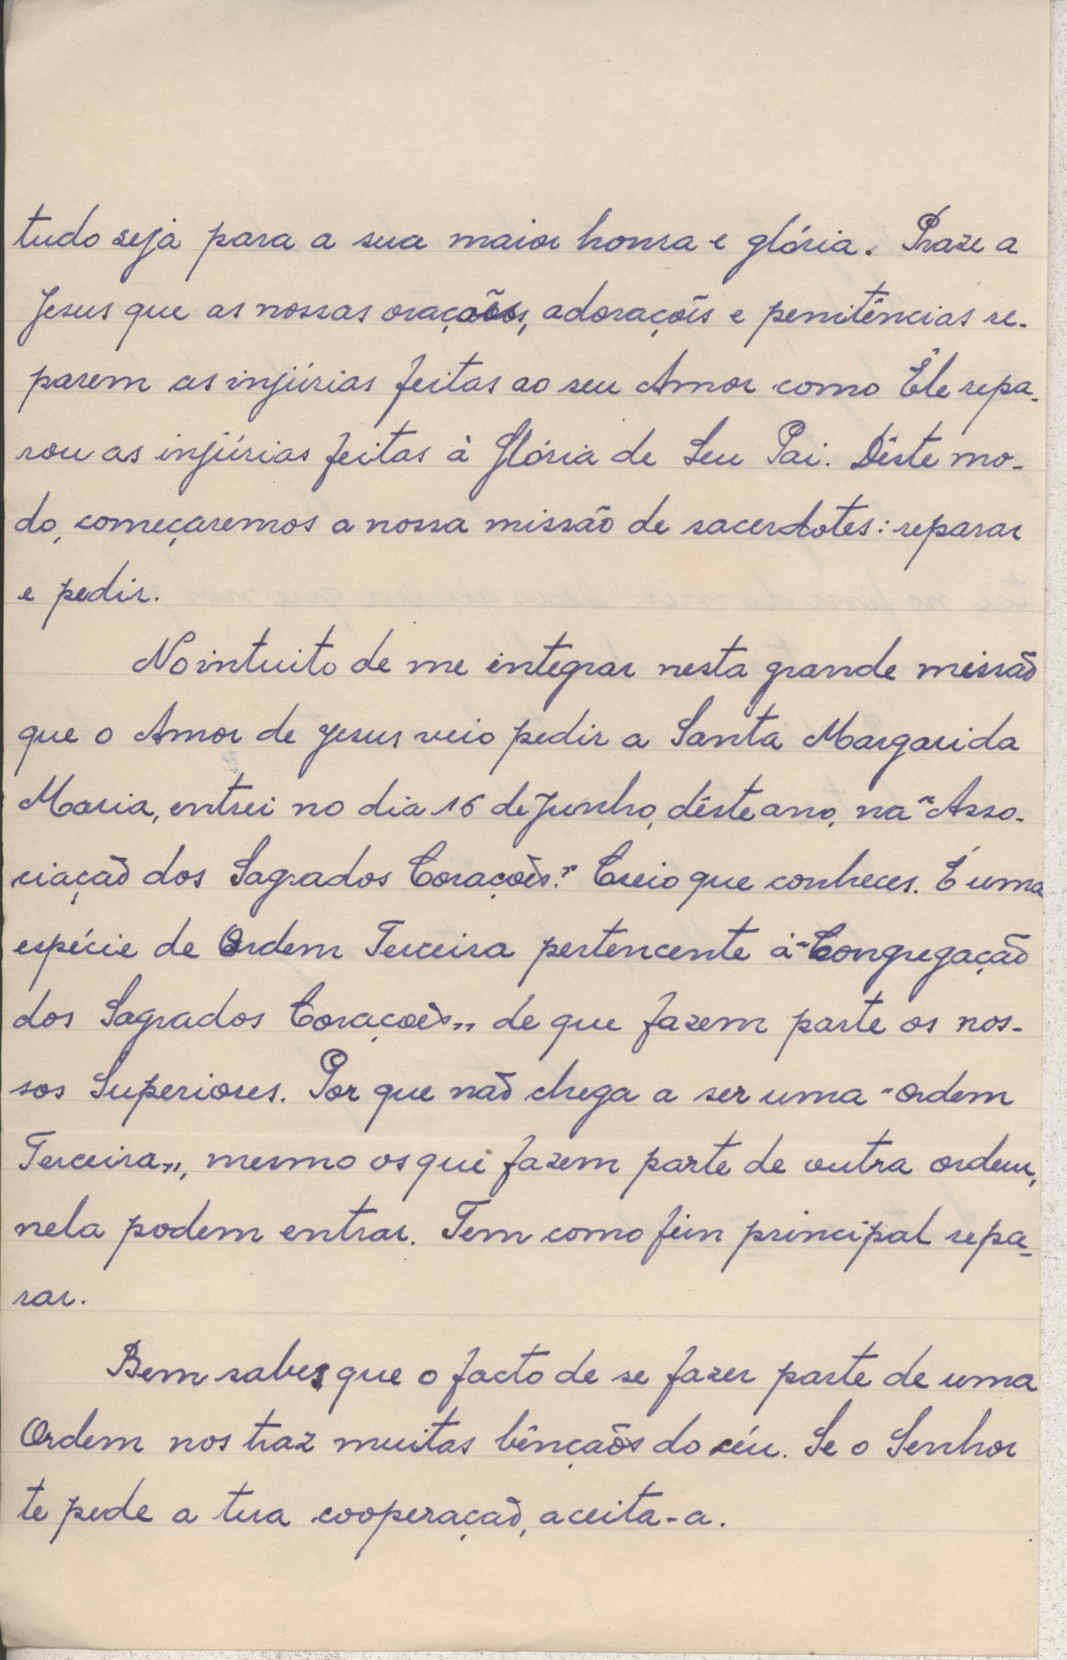 tudo seja para a sua maior honra e glória. Praze a
Jesus que as nossas orações, adorações e penitências re-
parem as injúrias feitas ao seu Amor como Êle repa-
rou as injúrias feitas à Glória de Seu Pai. Dêste mo-
do, começaremos a nossa missão de sacerdotes: reparar
e pedir.
No intuito de me integrar nesta grande missão
que o Amor de Jesus veio pedir a Santa Margarida
Maria, entrei no dia 16 de Junho, dêste ano, na "Asso-
ciação dos Sagrados Corações." Creio que conheces. É uma
espécie de Ordem Terceira pertencente à "Congregação
dos Sagrados Corações" de que fazem parte os nos-
sos Superiores. Por que não chega a ser uma "Ordem
Terceira", mesmo os que fazem parte de outra ordem,
nela podem entrar. Tem como fim principal repa-
rar.
Bem sabes que o facto de se fazer parte de uma
Ordem nos traz muitas bênçãos do céu. Se o Senhor
te pede a tua cooperação, aceita-a.